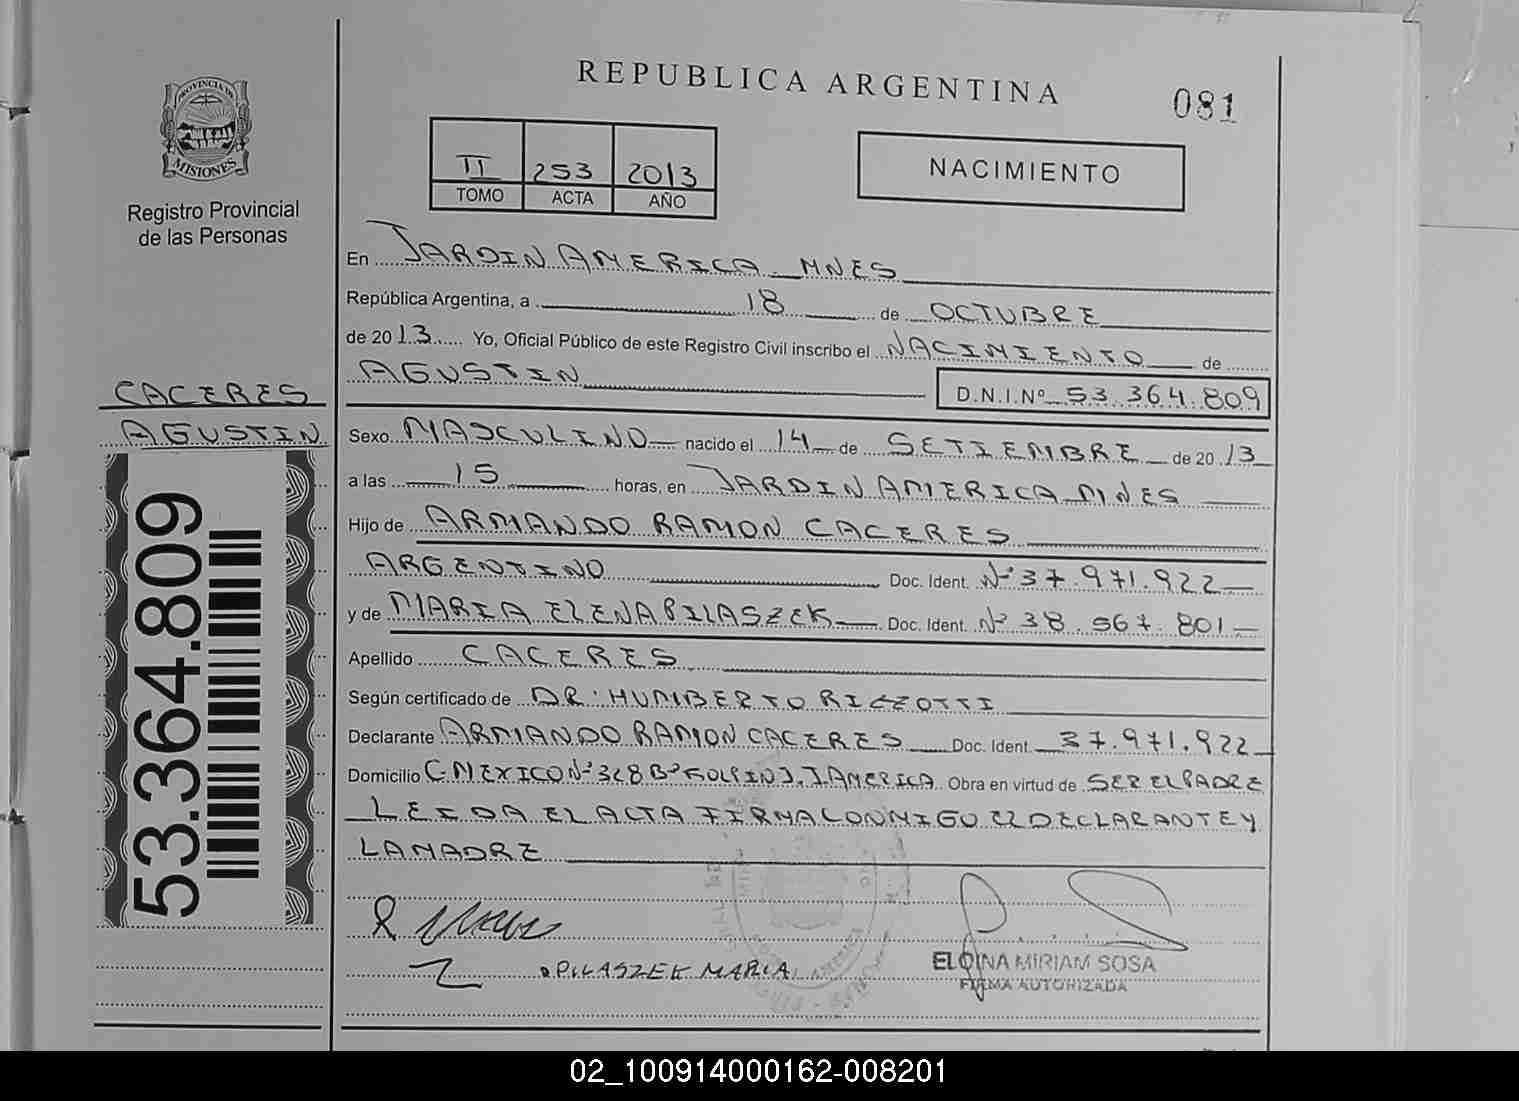 REPUBLICA ARGENTINA
081
PROVINCIA DE
MISIONES
Registro Provincial
de las Personas
II 253 2013
TOMO ACTA AÑO
NACIMIENTO
En JARDIN AMERICA MNES
República Argentina, a 18 de OCTUBRE
de 2013 Yo, Oficial Público de este Registro Civil inscribo el NACIMIENTO de
AGUSTIN D.N.I.Nº 53 364 809
CACERES
AGUSTIN
53.364.809
Sexo MASCULINO nacido el 14 de SETIEMBRE de 20 13
a las 15 horas, en JARDIN AMERICA MNES
Hijo de ARMANDO RAMON CACERES
ARGENTINO Doc. Ident. Nº 37.971.922
y de MARIA ELENA PILASZEK Doc. Ident. Nº 38 567 801
Apellido CACERES
Según certificado de DR: HUMBERTO RIZZOTTI
Declarante ARMANDO RAMON CACERES Doc. Ident. 37.971.922
Domicilio C.MEXICO Nº 328 Bº J. AMERICA Obra en virtud de SER EL PADRE
LEIDA EL ACTA FIRMA CONMIGO EL DECLARANTE Y
LA MADRE
PILASZEK MARIA
ELOINA MIRIAM SOSA
FIRMA AUTORIZADA
02_100914000162-008201